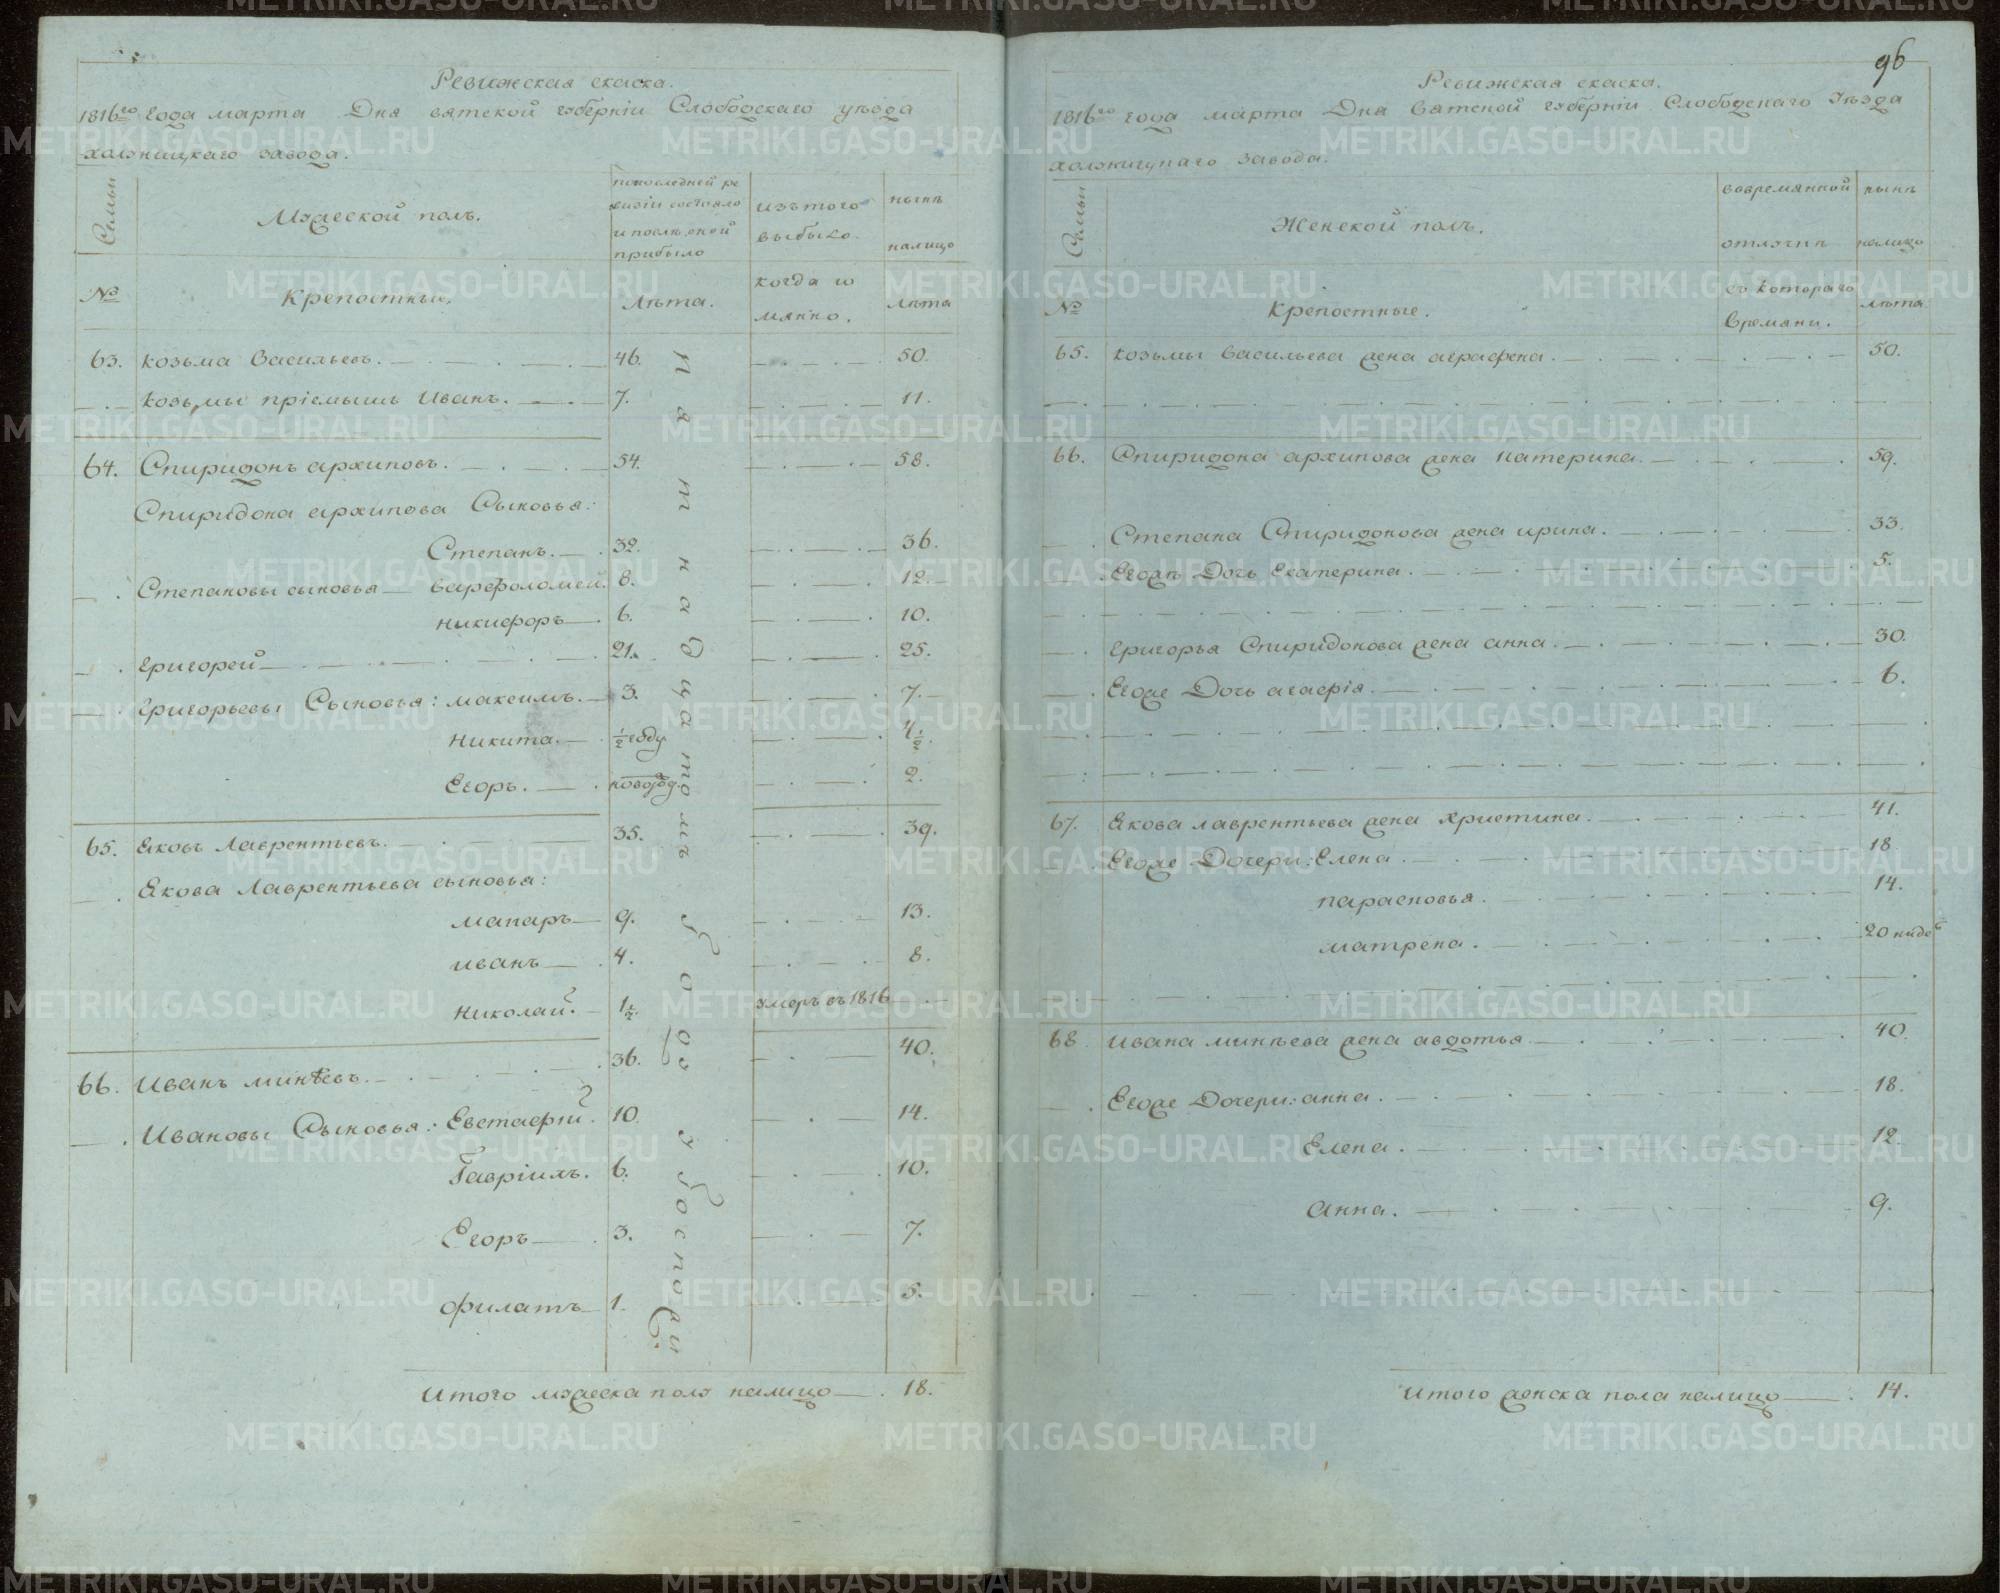 Ревижская скаска.
1816го года марта Дня вятской губерніи Слободскаго уѣзда
холжницкаго завода.
Семьи
Мужеской полъ.
попоследней ре
визіи состояло
и послѣ оной
прибыло
изътого
выбыло.
нынѣ
налицо
№
Крепостные.
Лѣта.
когда и
мянно.
лѣта
63. козьма Васильевъ. 46. 50.
козьмы пріемышъ Иванъ. 7. 11.
64. Спиридонъ архиповъ. 54. 58.
Спиридона архипова Сыновья:
Степанъ. 32. 36.
Степановы сыновья варфоломей. 8. 12.
никифоръ 6. 10.
григорей 21. 25.
григорьевы Сыновья: максимъ. 3. 7.
никита. ½ году 4½.
Егоръ. новорѣд. 2.
65. Яковъ Лаврентьевъ. 35. 39.
Якова Лаврентьева сыновья:
макаръ 9. 13.
иванъ 4. 8.
николай. 1½. умеръ въ 1816
66. Иванъ минѣевъ. 36. 40.
Ивановы Сыновья: Евстафій. 10. 14.
Гавріилъ. 6. 10.
Егоръ 3. 7.
филатъ 1. 5.
Итого мужеска полу налицо 18.
96
Ревижская скаска.
1816го года марта Дня Вятской губерніи Слободскаго Уѣзда
холжницкаго завода.
Семьи
Женской полъ.
вовремянной
отлучкѣ
нынѣ
налицо
№
Крепостные.
съ котораго
времяни.
лѣта
65. козьмы Васильева жена аграфена. 50.
66. Спиридона архипова жена катерина. 59.
Степана Спиридонова жена ирина. 33.
Егожъ Дочь екатерина. 5.
григорья Спиридонова жена анна. 30.
Егоже Дочь агафія. 6.
67. Якова лаврентьева жена христина. 41.
Егоже Дочери: Елена. 18.
парасковья. 14.
матрена. 20 нидѣ
68. ивана минѣева жена авдотья. 40.
Егоже Дочери: анна. 18.
Елена. 12.
Анна. 9.
Итого женска пола налицо 14.
METRIKI.GASO-URAL.RU